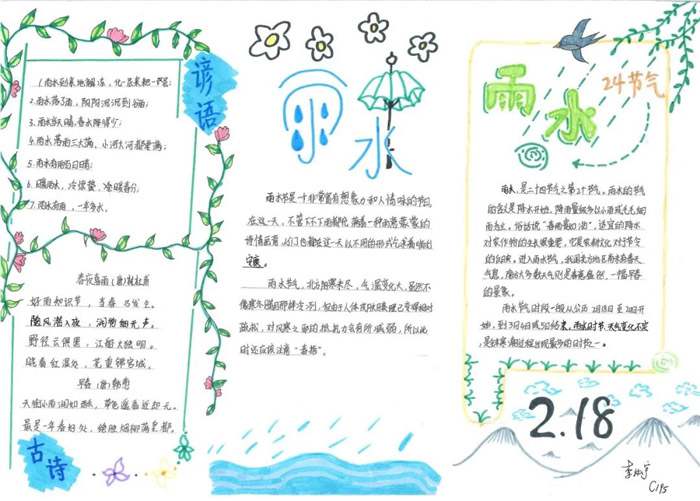 谚语
1.雨水到来地解冻,化一层来耙一层。
2.雨水落了雨,阴阴沉沉到谷雨;
3.雨水明,夏至晴;
4.雨水落雨三大碗,小河大河都要满;
5.雨水有雨百日晴;
6.暖雨水,冷惊蛰,冷暖春分;
7.雨水有雨,一年多水。
春夜喜雨(唐)杜甫
好雨知时节,当春乃发生。
随风潜入夜,润物细无声。
野径云俱黑,江船火独明。
晓看红湿处,花重锦官城。
早春(唐)韩愈
天街小雨润如酥,草色遥看近却无。
最是一年春好处,绝胜烟柳满皇都。
古诗
雨水
雨水节是一个非常富有想象力和人情味的节日,
在这一天,不管下不下雨都充满着一种雨意蒙蒙的
诗情画意,人们也都在这一天以不同的形式
守寓。
雨水节气,北方阴寒未尽,气温变化大,虽然不
像寒冬腊月那样冷冽,但由于人体皮肤腠理已变得相对
疏松,对风寒之邪的抵抗力会有所减弱,所以此
时还应该注意“春捂”。
雨水
24节气
雨水,是二十四节气之第2个节气。雨水节气
的含义是降水开始,降雨量级多以小雨或毛毛细
雨为主。俗话说“春雨贵如油”,适宜的降水
对农作物的生长很重要,它是农耕文化对于节令
的反映。进入雨水节气,我国北方地区尚未有春天
气息,南方大多数天气则是春意盎然,一幅早春
的景象。
雨水节气时段一般从公历2月18日至20日开
始,到3月4日或5日结束,雨水时节,天气变化不定
是全年寒潮过程出现最多的时节之一。
2.18
C195